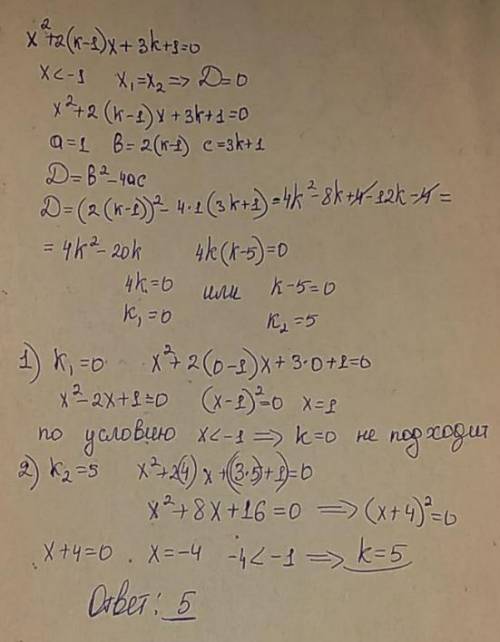 x²+2(k-1)x+3k+1=0
x<-1 x₁=x₂ => D=0
x²+2(k-1)x+3k+1=0
a=1 b=2(k-1) c=3k+1
D=b²-4ac
D=(2(k-1))²-4·1(3k+1)=4k²-8k+4-12k-4=
=4k²-20k 4k(k-5)=0
4k=0 или k-5=0
k₁=0 k₂=5
1) k₁=0 x²+2(0-1)x+3·0+1=0
x²-2x+1=0 (x-1)²=0 x=1
по условию x<-1 => k=0 не подходит
2) k₂=5 x²+2(4)x+(3·5)+1)=0
x²+8x+16=0 => (x+4)²=0
x+4=0. x=-4 -4<-1 => k=5
Ответ: 5